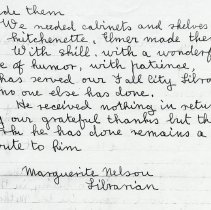 de them
We needed cabinets and shelves
kitchenette, Elmer made them
With skill, with a wonderf
e of humor, with patience,
has served our Fall City Libra
ns one else has done.
He received nothing in retu
our grateful thanks but th
k he has done remains a
ute to him
Marguerite Nelson
Librarian